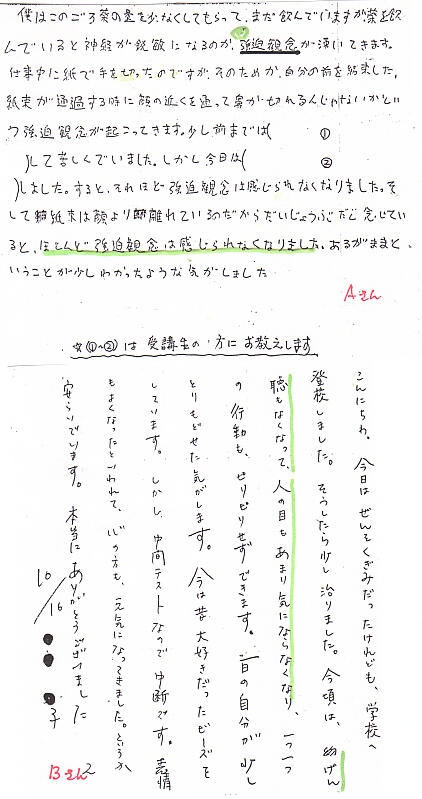 僕はこのごろ薬の量を少なくしてもらって、まだ飲んでいますが薬を飲
んでいると神経が鋭敏になるのか、強迫観念が湧いてきます。
仕事中に紙で手を切ったのですが、そのためか、自分の前を結束した
紙束が通過する時に顔の近くを通って鼻が切れるんじゃないかとい
う強迫観念が起こってきます。少し前までは( ①
)して苦しくでいました。しかし今日は( ②
)しました。すると、それほど強迫観念は感じられなくなりました。そ
して紙束は顔より距離れているのだからだいじょうぶだと念じてい
ると、ほとんど強迫観念は感じられなくなりました。あるがままと
いうことが少しわかったような気がしました
Aさん
☆(①~②)は受講生の方にお教えします
こんにちわ。今日はぜんそくぎみだったけれども、学校へ
登校しました。そうしたら少し治りました。今頃は、幼げん
聴もなくなって、人の目もあまり気にならなくなり、一つ一つ
の行動も、せりせりせずできます。昔の自分が少し
とりもどせた気がします。今は昔大好きだったビーズを
しています。しかし、中間テストなので中断です。表情
もよくなったといわれて、心の方も、元気になってきました。というか
安らいでいます。本当にありがとうございました
10/16 ●● ●子
Bさん2